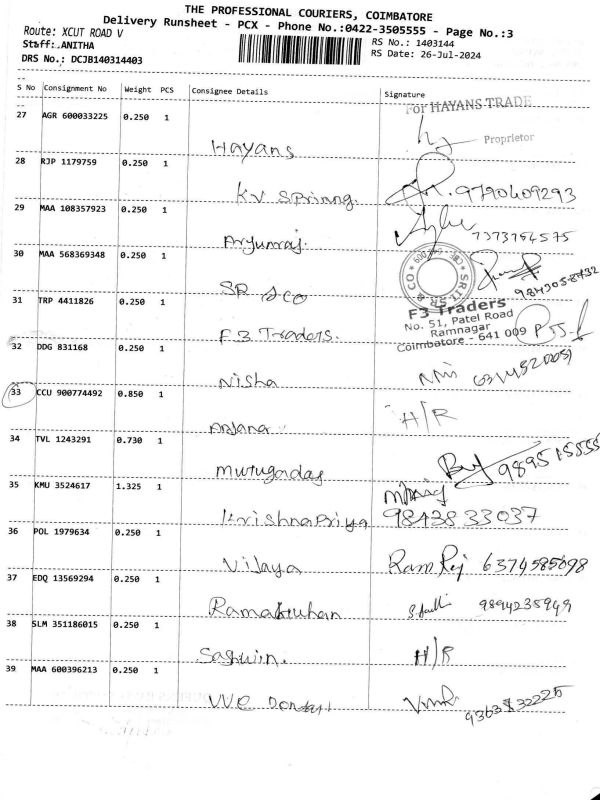 THE PROFESSIONAL COURIERS, COIMBATORE
Delivery Runsheet - PCX - Phone No.:0422-3505555 - Page No.:3
Route: XCUT ROAD V
Staff: ANITHA
DRS No.: DCJB140314403
RS No.: 1403144
RS Date: 26-Jul-2024
S No Consignment No Weight PCS Consignee Details Signature
For HAYANS TRADE
27 AGR 600033225 0.250 1 Hayans
Proprietor
28 RJP 1179759 0.250 1 KV Spring. 9790409293
29 MAA 108357923 0.250 1 Aryunraj. 7373754575
30 MAA 568369348 0.250 1 SR & CO
31 TRP 4411826 0.250 1 F3 Traders.
F3 Traders
No. 51, Patel Road
Ramnagar
Coimbatore - 641 009
32 DDG 831168 0.250 1 Nisha
33 CCU 900774492 0.850 1 Anjana H/R
34 TVL 1243291 0.730 1 Murugadas 9895155555
35 KMU 3524617 1.325 1 Krishnapriya 9843833037
36 POL 1979634 0.250 1 Vijaya Ram Raj 6374585098
37 EDQ 13569294 0.250 1 9894235949
38 SLM 351186015 0.250 1 H/R
39 MAA 600396213 0.250 1 We